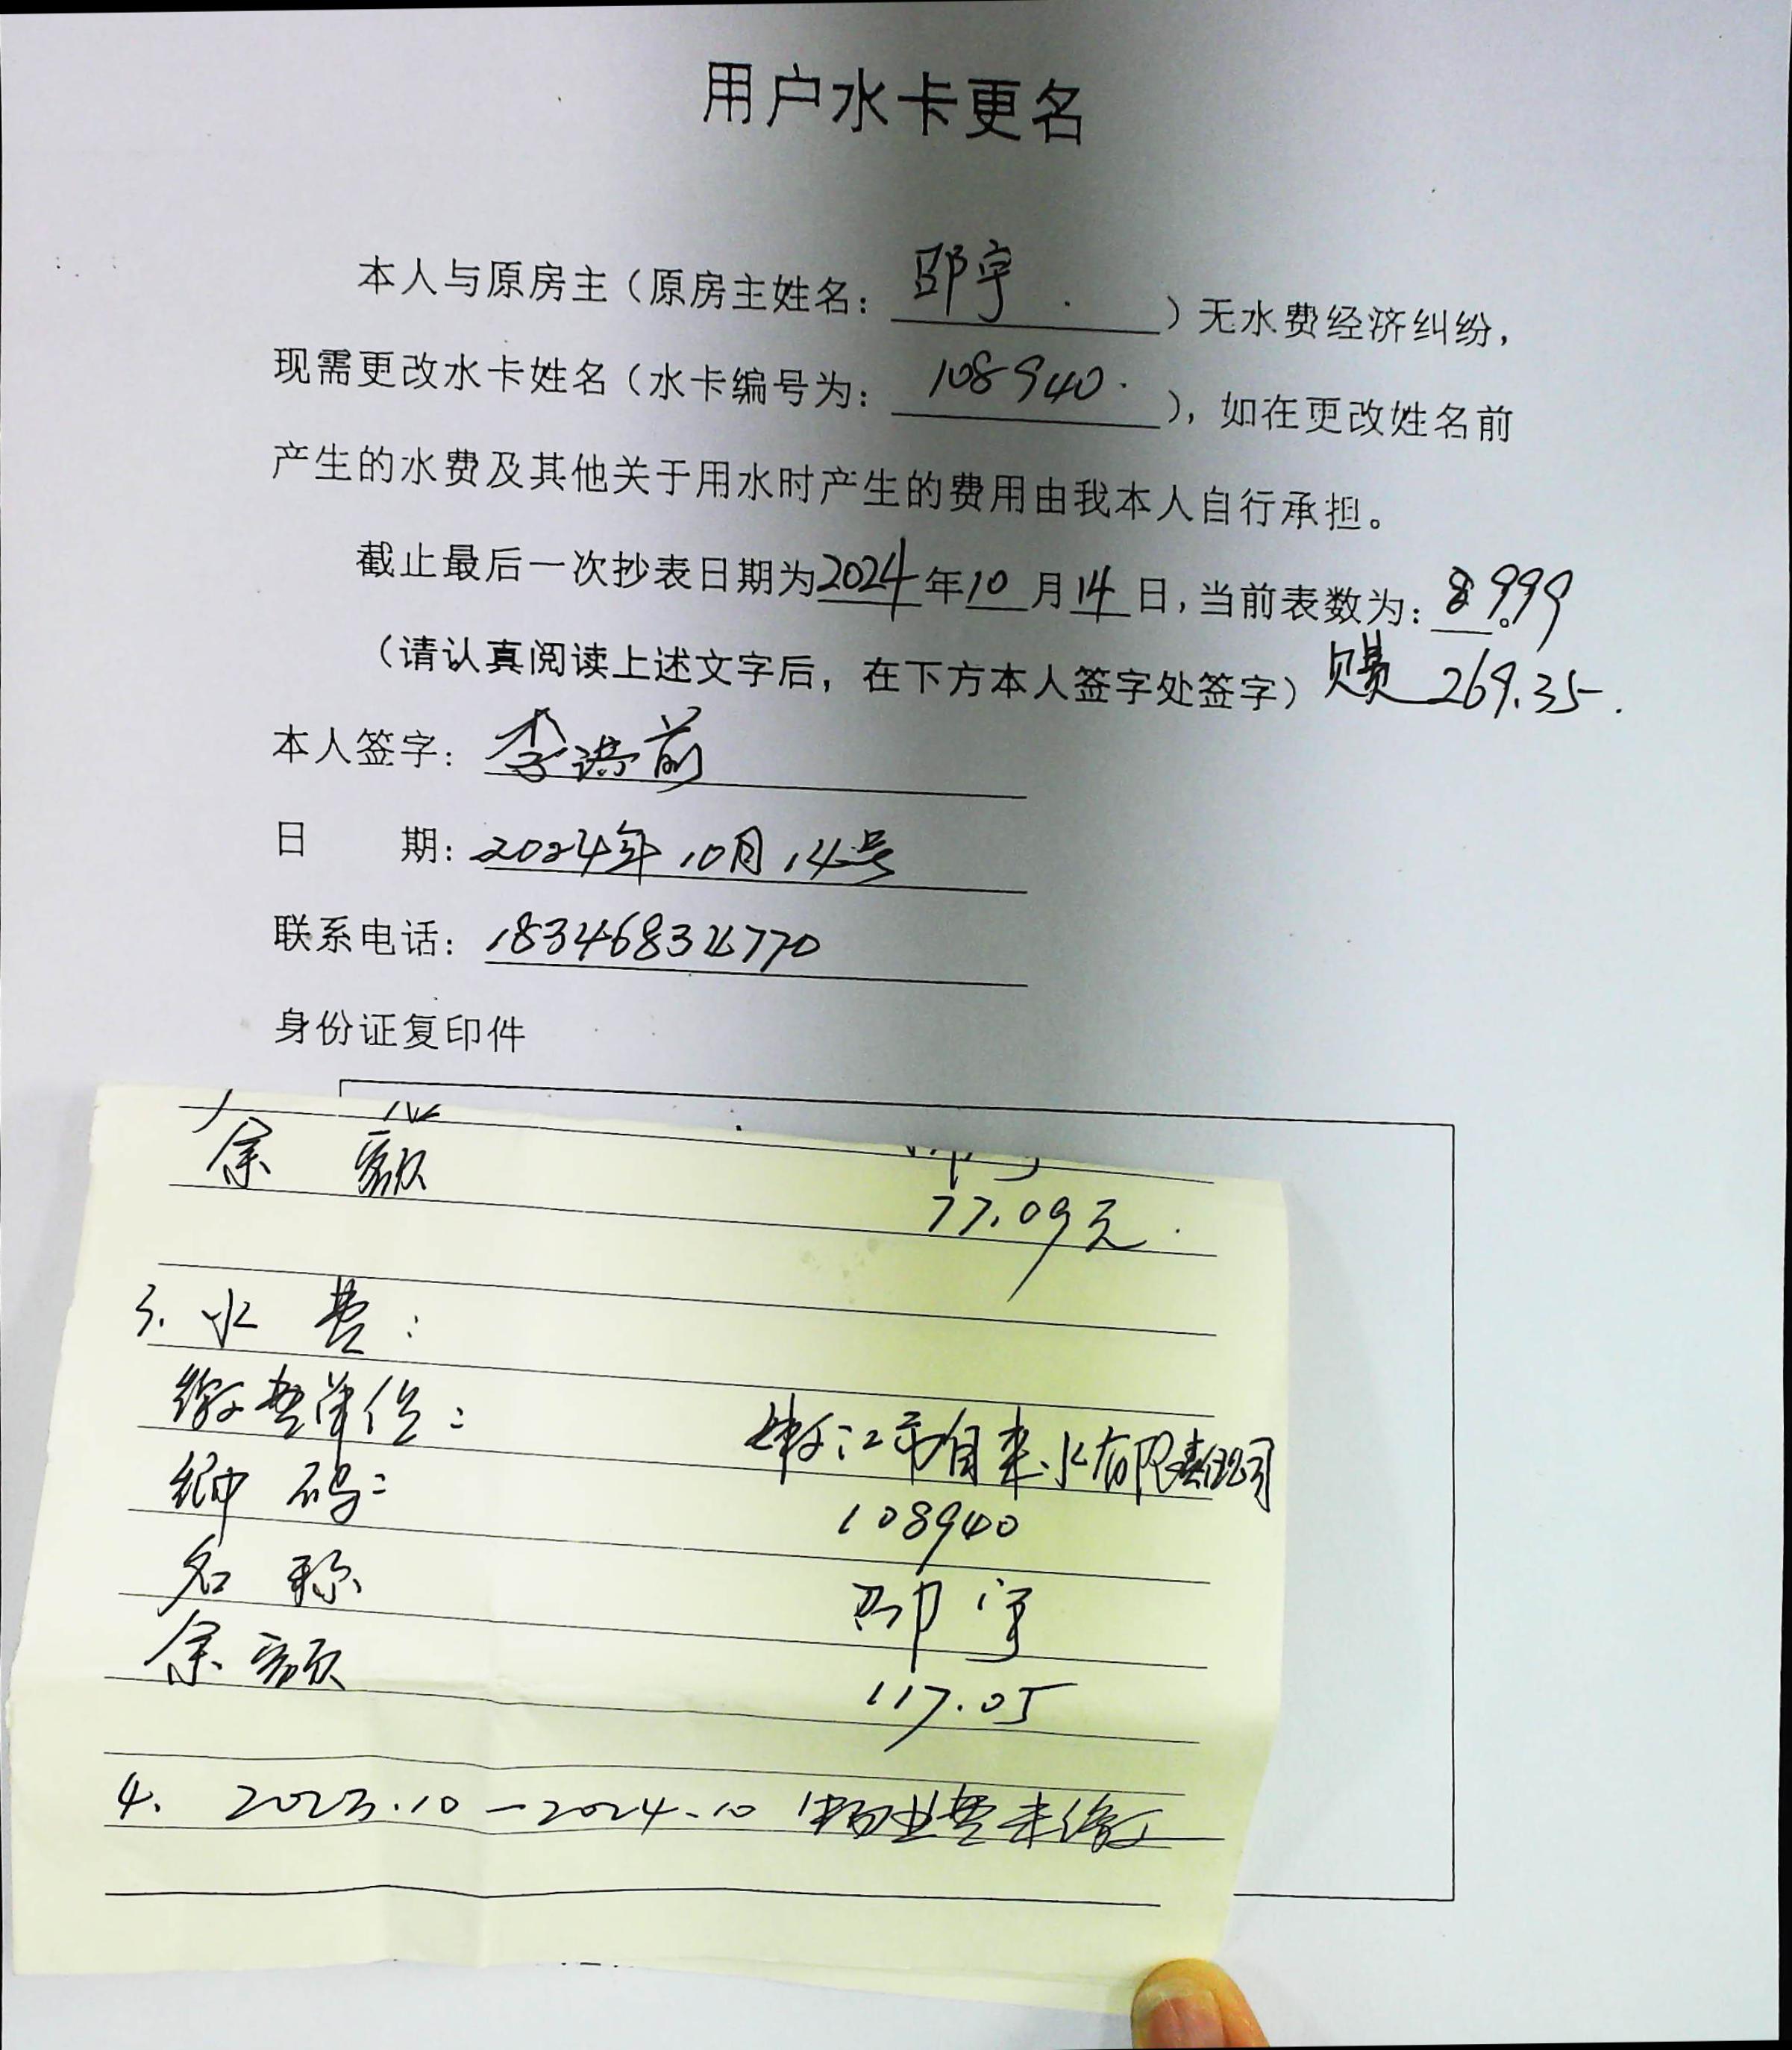 用户水卡更名
本人与原房主（原房主姓名：邵宇）无水费经济纠纷，
现需更改水卡姓名（水卡编号为：108940），如在更改姓名前
产生的水费及其他关于用水时产生的费用由我本人自行承担。
截止最后一次抄表日期为2024年10月14日，当前表数为：8999。
（请认真阅读上述文字后，在下方本人签字处签字） 269.35.
本人签字：李洪前
日 期：2024年10月14号
联系电话：
身份证复印件
余额 77.09元
3. 水费：
缴费单位： 市自来水有限责任公司
编码： 108940
名称 邵宇
余额 117.05
4. 2023.10—2024.10 物业费未缴